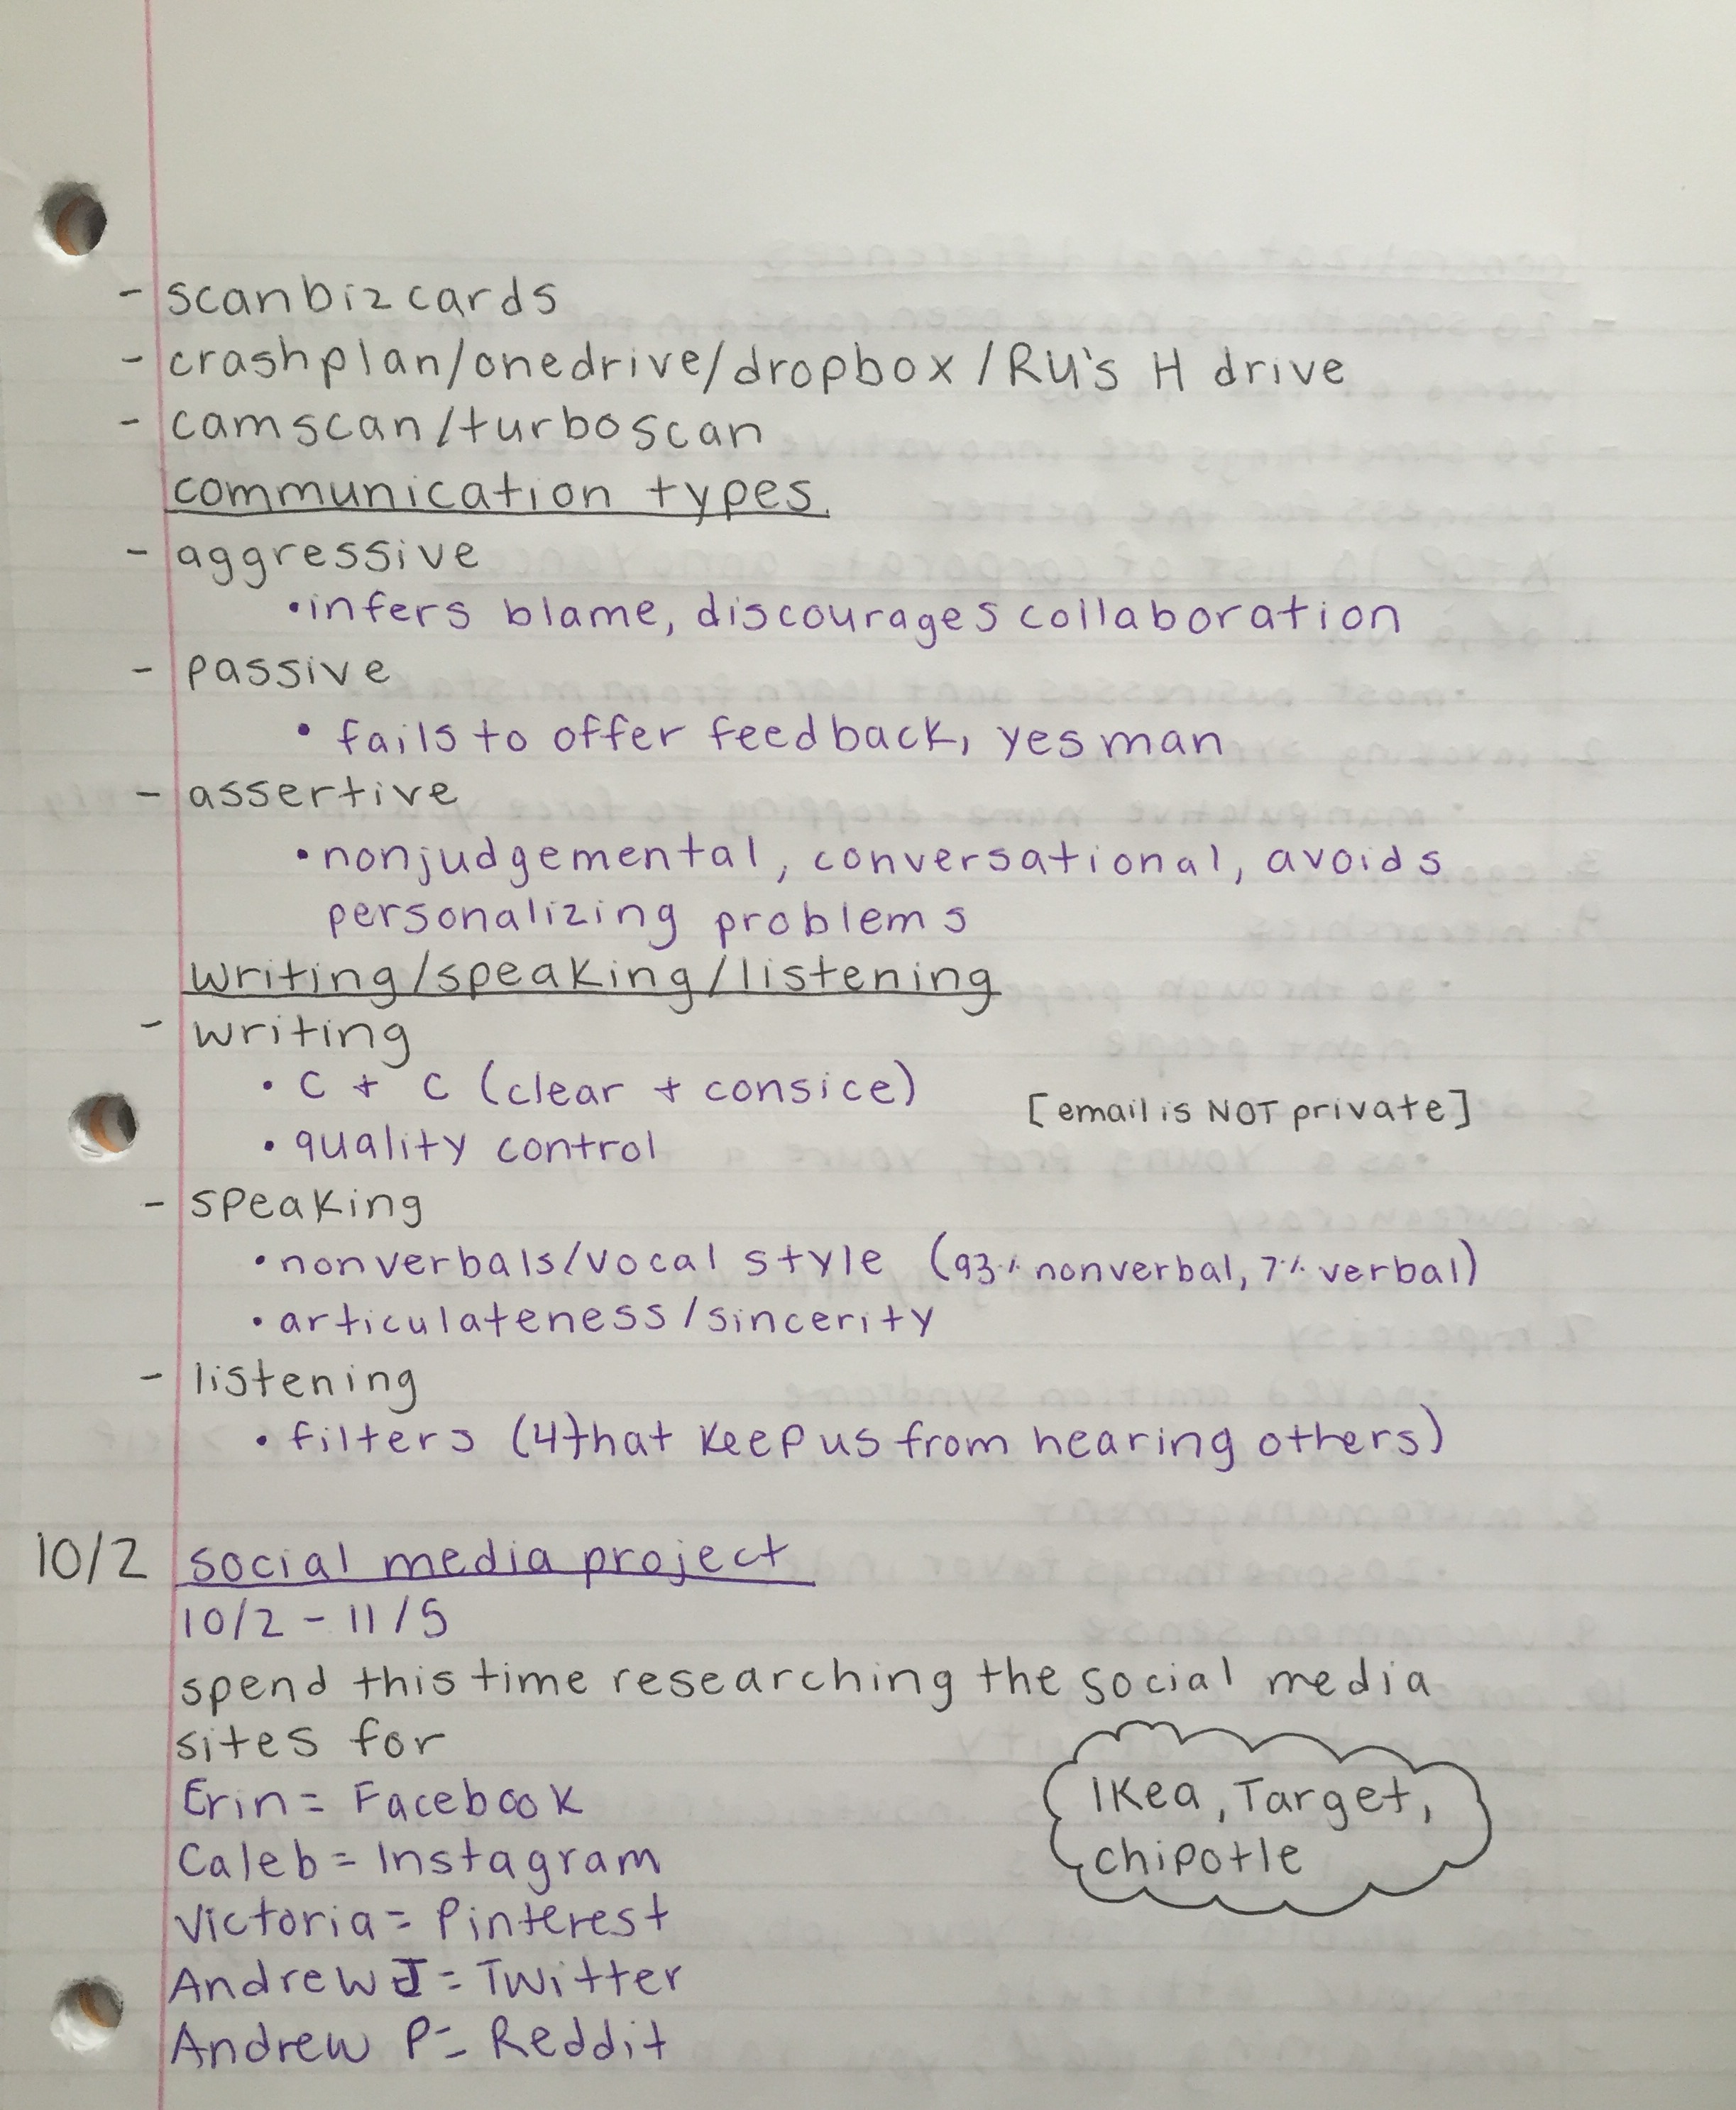 - scanbizcards
- crashplan/onedrive/dropbox/RU's H drive
- camscan/turboscan
communication types
- aggressive
• infers blame, discourages collaboration
- passive
• fails to offer feedback, yes man
- assertive
• nonjudgemental, conversational, avoids
personalizing problems
writing/speaking/listening
- writing
• C + C (clear + consice)
[email is NOT private]
• quality control
- speaking
• nonverbals/vocal style (93% nonverbal, 7% verbal)
• articulateness/sincerity
- listening
• filters (4 that keep us from hearing others)
10/2 social media project
10/2 - 11/5
spend this time researching the social media
sites for
Erin = Facebook
IKea, Target,
chipotle
Caleb = Instagram
Victoria = Pinterest
Andrew J = Twitter
Andrew P = Reddit